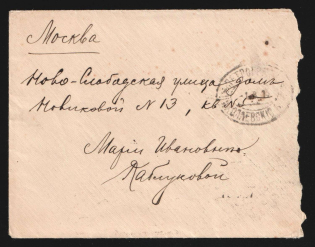 Москва
Ново-Слободская улица домъ
Новиковой N 13, кв N
Маріи Ивановнѣ
Каблуковой